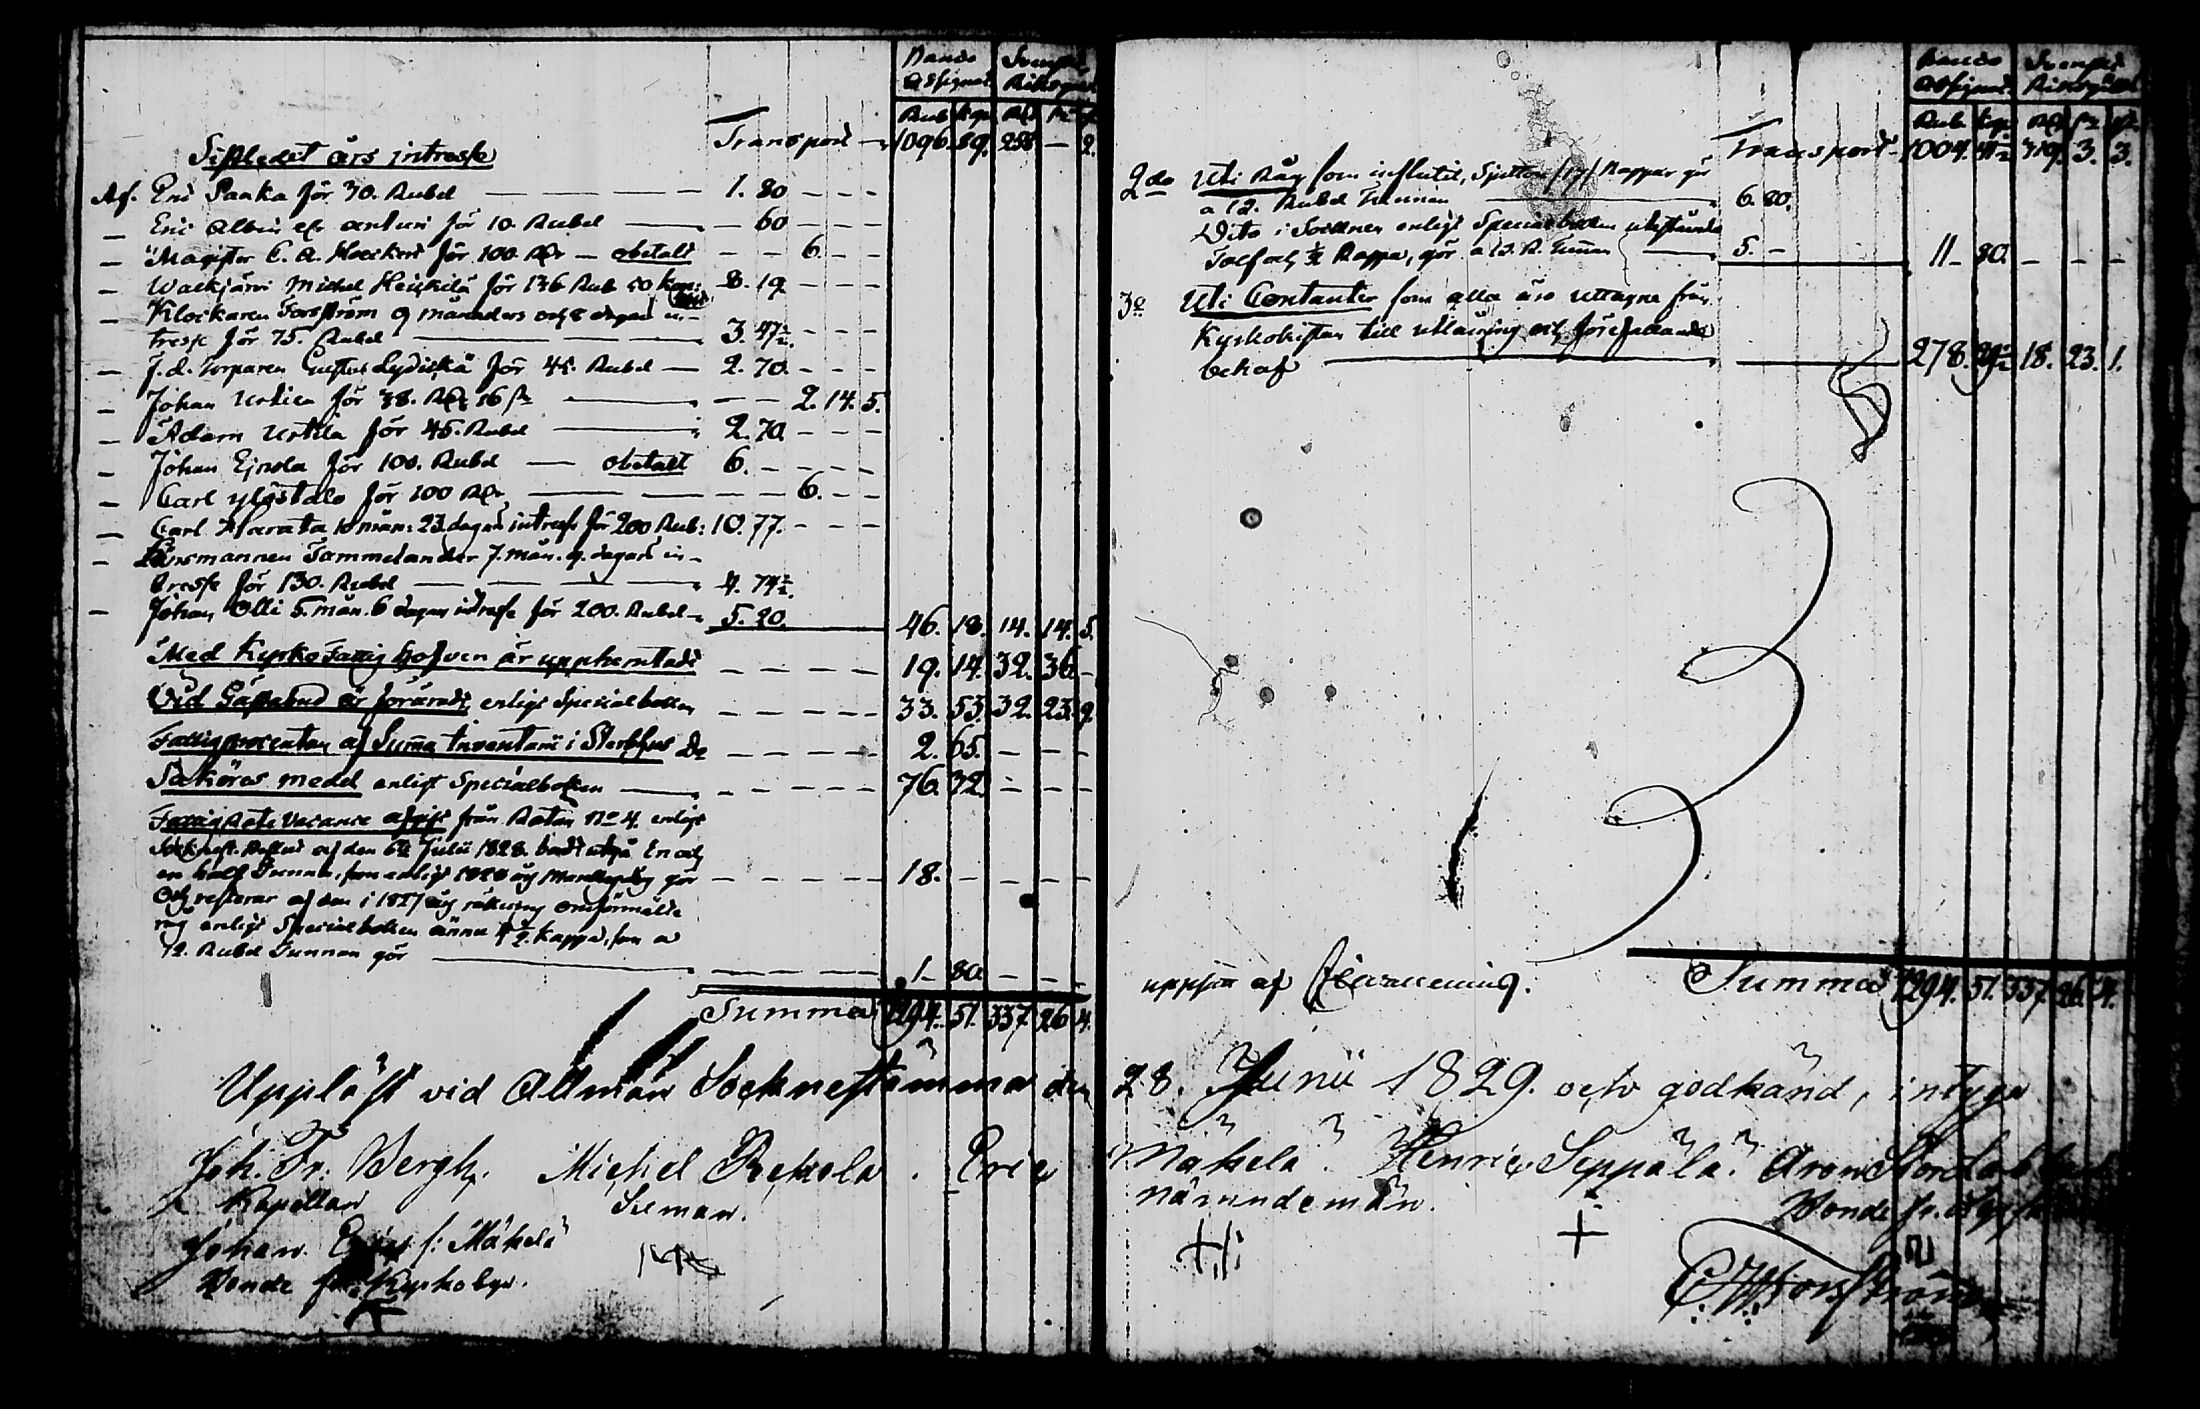 Banco Svenske
Assignat. Riksgäld
Rub. Kop. Rdr ß
Transport — 1096. 89. 258 — 2.
Sistledet års intresse
Af. Eric Panka för 30. Rubel — 1. 80 — — —
— Eric Albin för 10. Rubel — — 60 — — —
— Magister C. A. Hoeckert för 100 Rdr — obetalt — — 6. — —
— Michel Heickilä för 136 Rub 50 Kop: 8. 19 — — —
— Klockaren Forsström 9 månaders och 8 dagars in-
tresse för 75. Rubel — 3. 47½ — — —
— f. d. Torparen Gustuf för 45. Rubel — 2. 70. — — —
— Johan för 38. Rdr 16 ß — — — 2. 14. 5.
— Adam för 45. Rubel — 2. 70. — — —
— Johan för 100. Rubel — obetalt 6. — — — —
— Carl Ylöstalo för 100 Rdr — — — 6. — —
— Carl Harata 10 mån: 23. dagars intresse för 200 Rub: 10. 77. — — —
— Länsmannen Tammelander 7. mån. 9. dagars in-
tresse för 130. Rubel — 4. 74½.
— Johan Olli 5. mån. 6 dagars intresse för 200. Rubel — 5. 20. 46. 18. 14. 14. 5.
Med Kyrko Fattig Hofven är upphemtadt — — — — — 19. 14. 32. 36. —
Vid Gästabud är föräradt, enligt Specialboken — — — — — 33. 53. 32. 23. 9
Fattigprocenten af Summa Inventarii i Sterbhus — — — — — 2. 65. — — —
Saköres medel enligt Specialboken — — — — — 76. 32. — — —
Fattig Rote Vacance afgift från Rotan No 4. enligt
Socknest. Beslut af den 6te Julii 1828. En och
en half Tunna, som enligt 1828 års Markegång gör — — — — — 18. — — — —
Och resterar af den i 1827 års räkning omförmälte
råg enligt Specialboken ännu 4½. kappar, som a
12. Rubel Tunnan gör — 1 — 80 — — —
Summa 1294. 51. 337 26 4.
Uppläst vid Allmän Sockneståmma den
Joh. Fr. Bergh. Michel Rekola. Eric
Kapellan Sexman.
Johan Ersson Mäkelä
Bonde fr. Kyrkobyn.
Banco Svenske
Assignat. Riksgäld
Rub. Kop. Rdr ß
Transport — 1004. 41½ 319. 3. 3.
2do Uti Råg som influtit, Sjutton /17/ Kappar gör
a 12. Rubel Tunnan — 6. 80.
Dito i Socknen enligt Specialboken utestående
Tolf och ½ Kappa, gör a 12. R. Tunnan — 5. — 11 — 80. — — —
3o Uti Contanter som alla äro uttagne från
Kyrkokistan till utlåning och förefallande
behof — 278. 29½ 18. 23. 1.
Summa 1294. 51. 337. 26. 4.
28. Junii 1829. och godkänd, intyga
Mäkelä. Henric Seppälä. Aron
nämndemän. Bonde fr.
Forsström